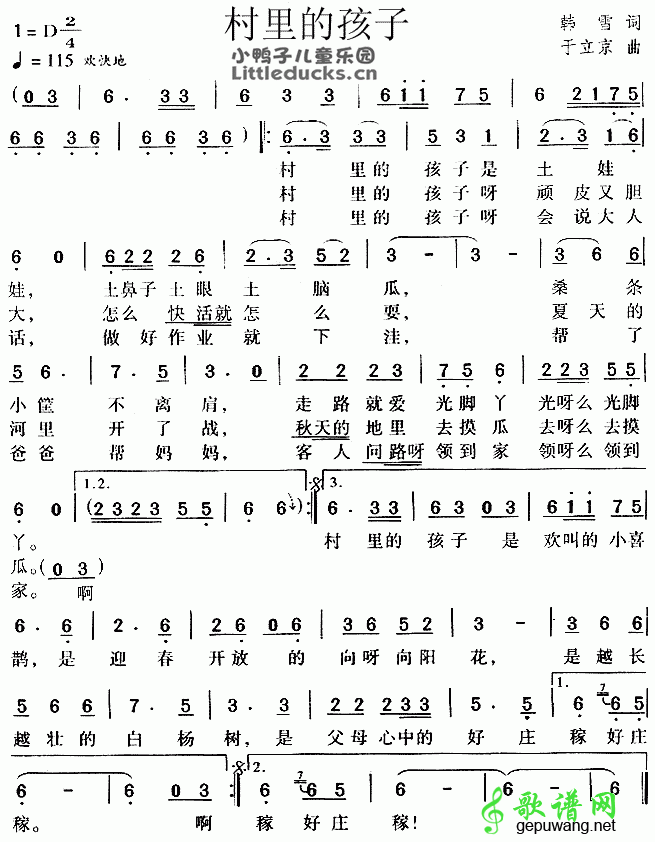 村里的孩子
1=D 2/4
♩=115 欢快地
韩雪 词
于立京 曲
小鸭子儿童乐园
Littleducks.cn
(0 3 | 6· 3 3 | 6 3 3 | 6 1 1 7 5 | 6 2 1 7 5 |
6 6 3 6 | 6 6 3 6) |: 6·3 3 3 | 5 3 1 | 2·3 1 6 |
村 里的 孩子是 土 娃
村 里的 孩子呀 顽皮又胆
村 里的 孩子呀 会说大人
6 0 | 6 2 2 2 6 | 2·3 5 2 | 3 - | 3 - | 3 6 6 |
娃, 土鼻子土眼土 脑 瓜, 桑条
大, 怎么快活就怎 么 耍, 夏天的
话, 做好作业就 下 洼, 帮了
5 6· | 7· 5 | 3· 0 | 2 2 2 3 | 7 5 6 | 2 2 3 5 5 |
小筐 不离肩, 走路就爱 光脚丫 光呀么光脚
河里 开了战, 秋天的地里 去摸瓜 去呀么去摸
爸爸 帮妈妈, 客人问路呀 领到家 领呀么领到
1.2. 3.
6 0 | (2 3 2 3 5 5 | 6 6) :| 6· 3 3 | 6 3 0 3 | 6 0 5 | 6 1 1 7 5 |
丫。 村 里的 孩子 是 欢叫的小喜
瓜。(0 3)
家。 啊
6· 6 | 2· 6 | 2 6 0 6 | 3 6 5 2 | 3 - | 3 6 6 |
鹊,是 迎春 开放 的 向呀向阳 花, 是越长
1.
5 6 6 | 7· 5 | 3· 3 | 2 2 2 3 2 2 | 5· 5 | 6 6 5 |
越壮的 白杨 树,是 父母心中的 好庄 稼好庄
2.
6 - | 6 0 3 :| 6 - | 6 6 5 | 6 - | 6 - |
稼。 啊 稼 好庄 稼!
歌谱网
gepuwang.net